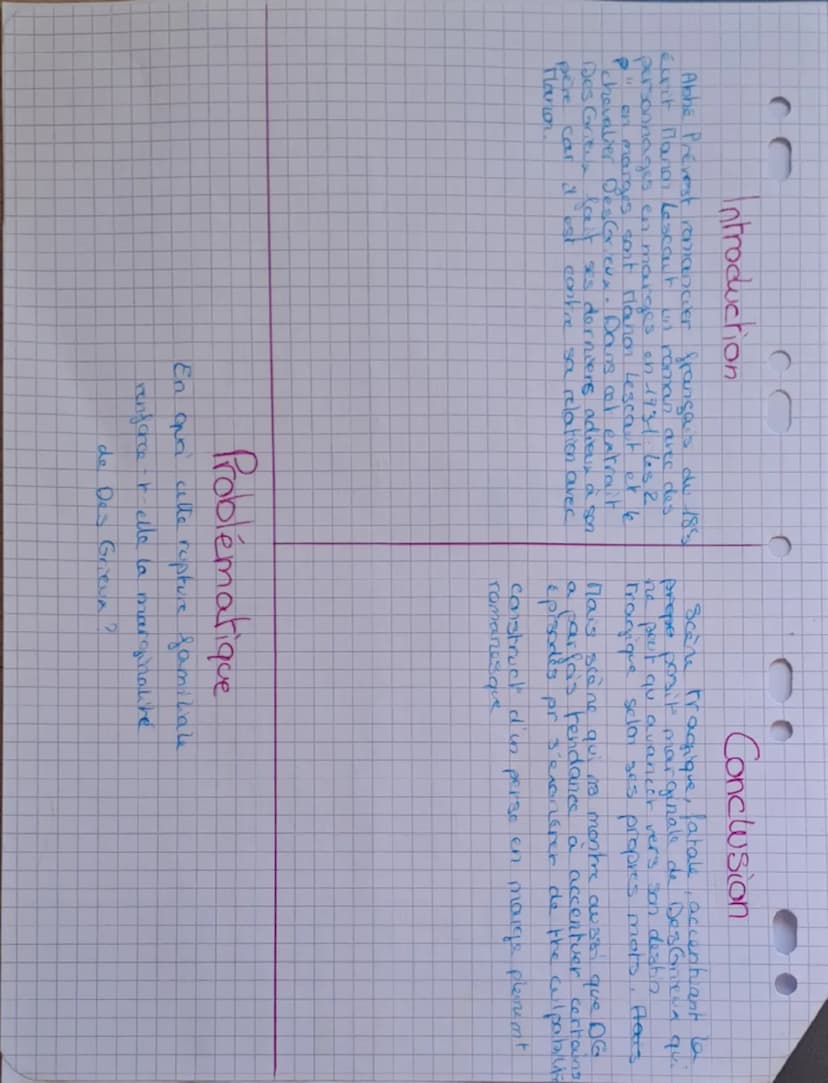 Introduction
Abbé Prévost romancier français du 18s
écrit Manon Lescaut un roman avec des
personnages en marges en 1731. Les 2
p" en marges sont Manon Lescaut et le
chevalier DesGrieux. Dans cet extrait
DesGrieux fait ses derniers adieux à son
père car il est contre sa relation avec
Manon.
Conclusion
Scène tragique, fatale, accentuant la
propre posit° marginale de DesGrieux qui
ne peut qu'avancer vers son destin
tragique selon ses propres mots.
Mais scène qui ns montre aussi que DG
a parfois tendance à accentuer certains
épisodes pr s'exonérer de tte culpabilité
construct° d'un perso en marge pleinemt
romanesque
Problématique
En quoi cette rupture familiale
renforce-t-elle la marginalité
de Des Grieux ?